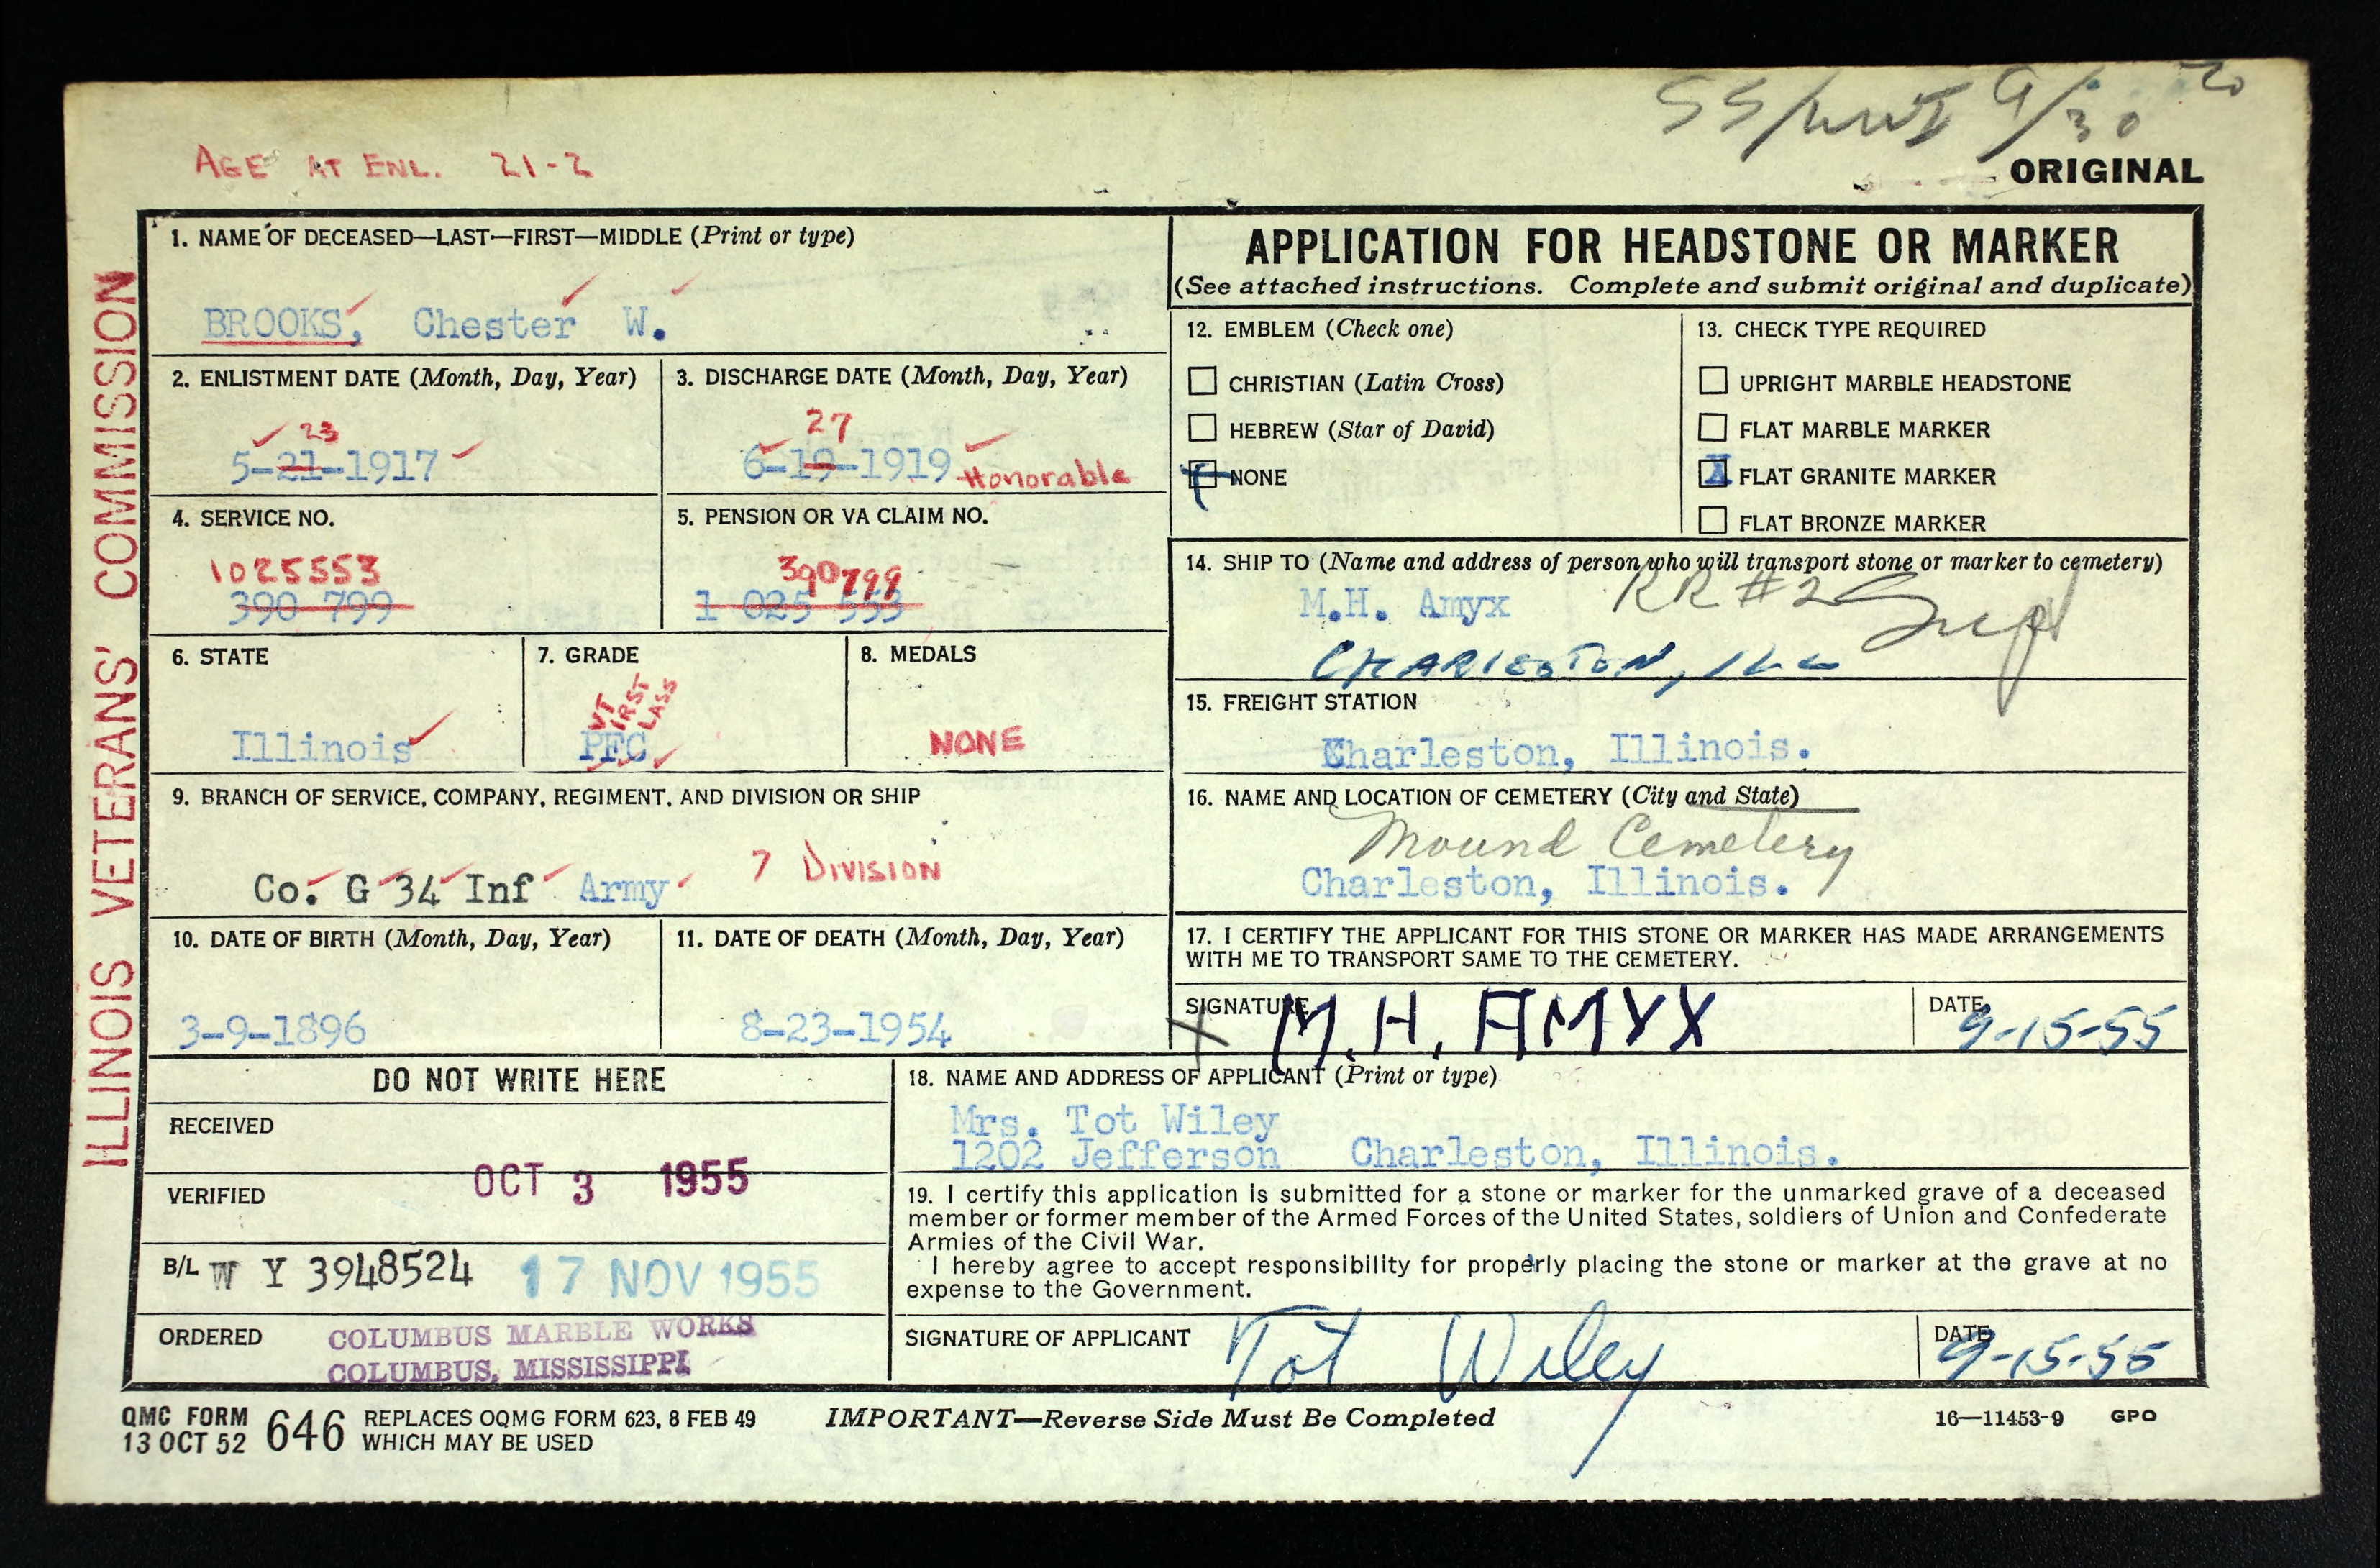 SS/WWI 9/30 20
AGE AT ENL. 21-2
ORIGINAL
ILLINOIS VETERANS' COMMISSION
1. NAME OF DECEASED—LAST—FIRST—MIDDLE (Print or type)
BROOKS, Chester W.
2. ENLISTMENT DATE (Month, Day, Year)
23
5-21-1917
3. DISCHARGE DATE (Month, Day, Year)
27
6-19-1919 Honorable
4. SERVICE NO.
1025553
390 799
5. PENSION OR VA CLAIM NO.
390799
1 025 553
6. STATE
Illinois
7. GRADE
VT
IRST
LASS
PFC
8. MEDALS
NONE
9. BRANCH OF SERVICE, COMPANY, REGIMENT, AND DIVISION OR SHIP
Co. G 34 Inf Army 7 DIVISION
10. DATE OF BIRTH (Month, Day, Year)
3-9-1896
11. DATE OF DEATH (Month, Day, Year)
8-23-1954
APPLICATION FOR HEADSTONE OR MARKER
(See attached instructions. Complete and submit original and duplicate)
12. EMBLEM (Check one)
CHRISTIAN (Latin Cross)
HEBREW (Star of David)
NONE
13. CHECK TYPE REQUIRED
UPRIGHT MARBLE HEADSTONE
FLAT MARBLE MARKER
X FLAT GRANITE MARKER
FLAT BRONZE MARKER
14. SHIP TO (Name and address of person who will transport stone or marker to cemetery)
M.H. Amyx RR #2
CHARLESTON, ILL
15. FREIGHT STATION
Charleston, Illinois.
16. NAME AND LOCATION OF CEMETERY (City and State)
Mound Cemetery
Charleston, Illinois.
17. I CERTIFY THE APPLICANT FOR THIS STONE OR MARKER HAS MADE ARRANGEMENTS
WITH ME TO TRANSPORT SAME TO THE CEMETERY.
SIGNATURE X M. H. AMYX DATE 9-15-55
DO NOT WRITE HERE
RECEIVED
OCT 3 1955
VERIFIED
B/L W Y 3948524 17 NOV 1955
ORDERED COLUMBUS MARBLE WORKS
COLUMBUS, MISSISSIPPI
18. NAME AND ADDRESS OF APPLICANT (Print or type)
Mrs. Tot Wiley
1202 Jefferson Charleston, Illinois.
19. I certify this application is submitted for a stone or marker for the unmarked grave of a deceased
member or former member of the Armed Forces of the United States, soldiers of Union and Confederate
Armies of the Civil War.
I hereby agree to accept responsibility for properly placing the stone or marker at the grave at no
expense to the Government.
SIGNATURE OF APPLICANT Tot Wiley DATE 9-15-55
QMC FORM 646 REPLACES OQMG FORM 623, 8 FEB 49
13 OCT 52 WHICH MAY BE USED
IMPORTANT—Reverse Side Must Be Completed
16—11453-9 GPO